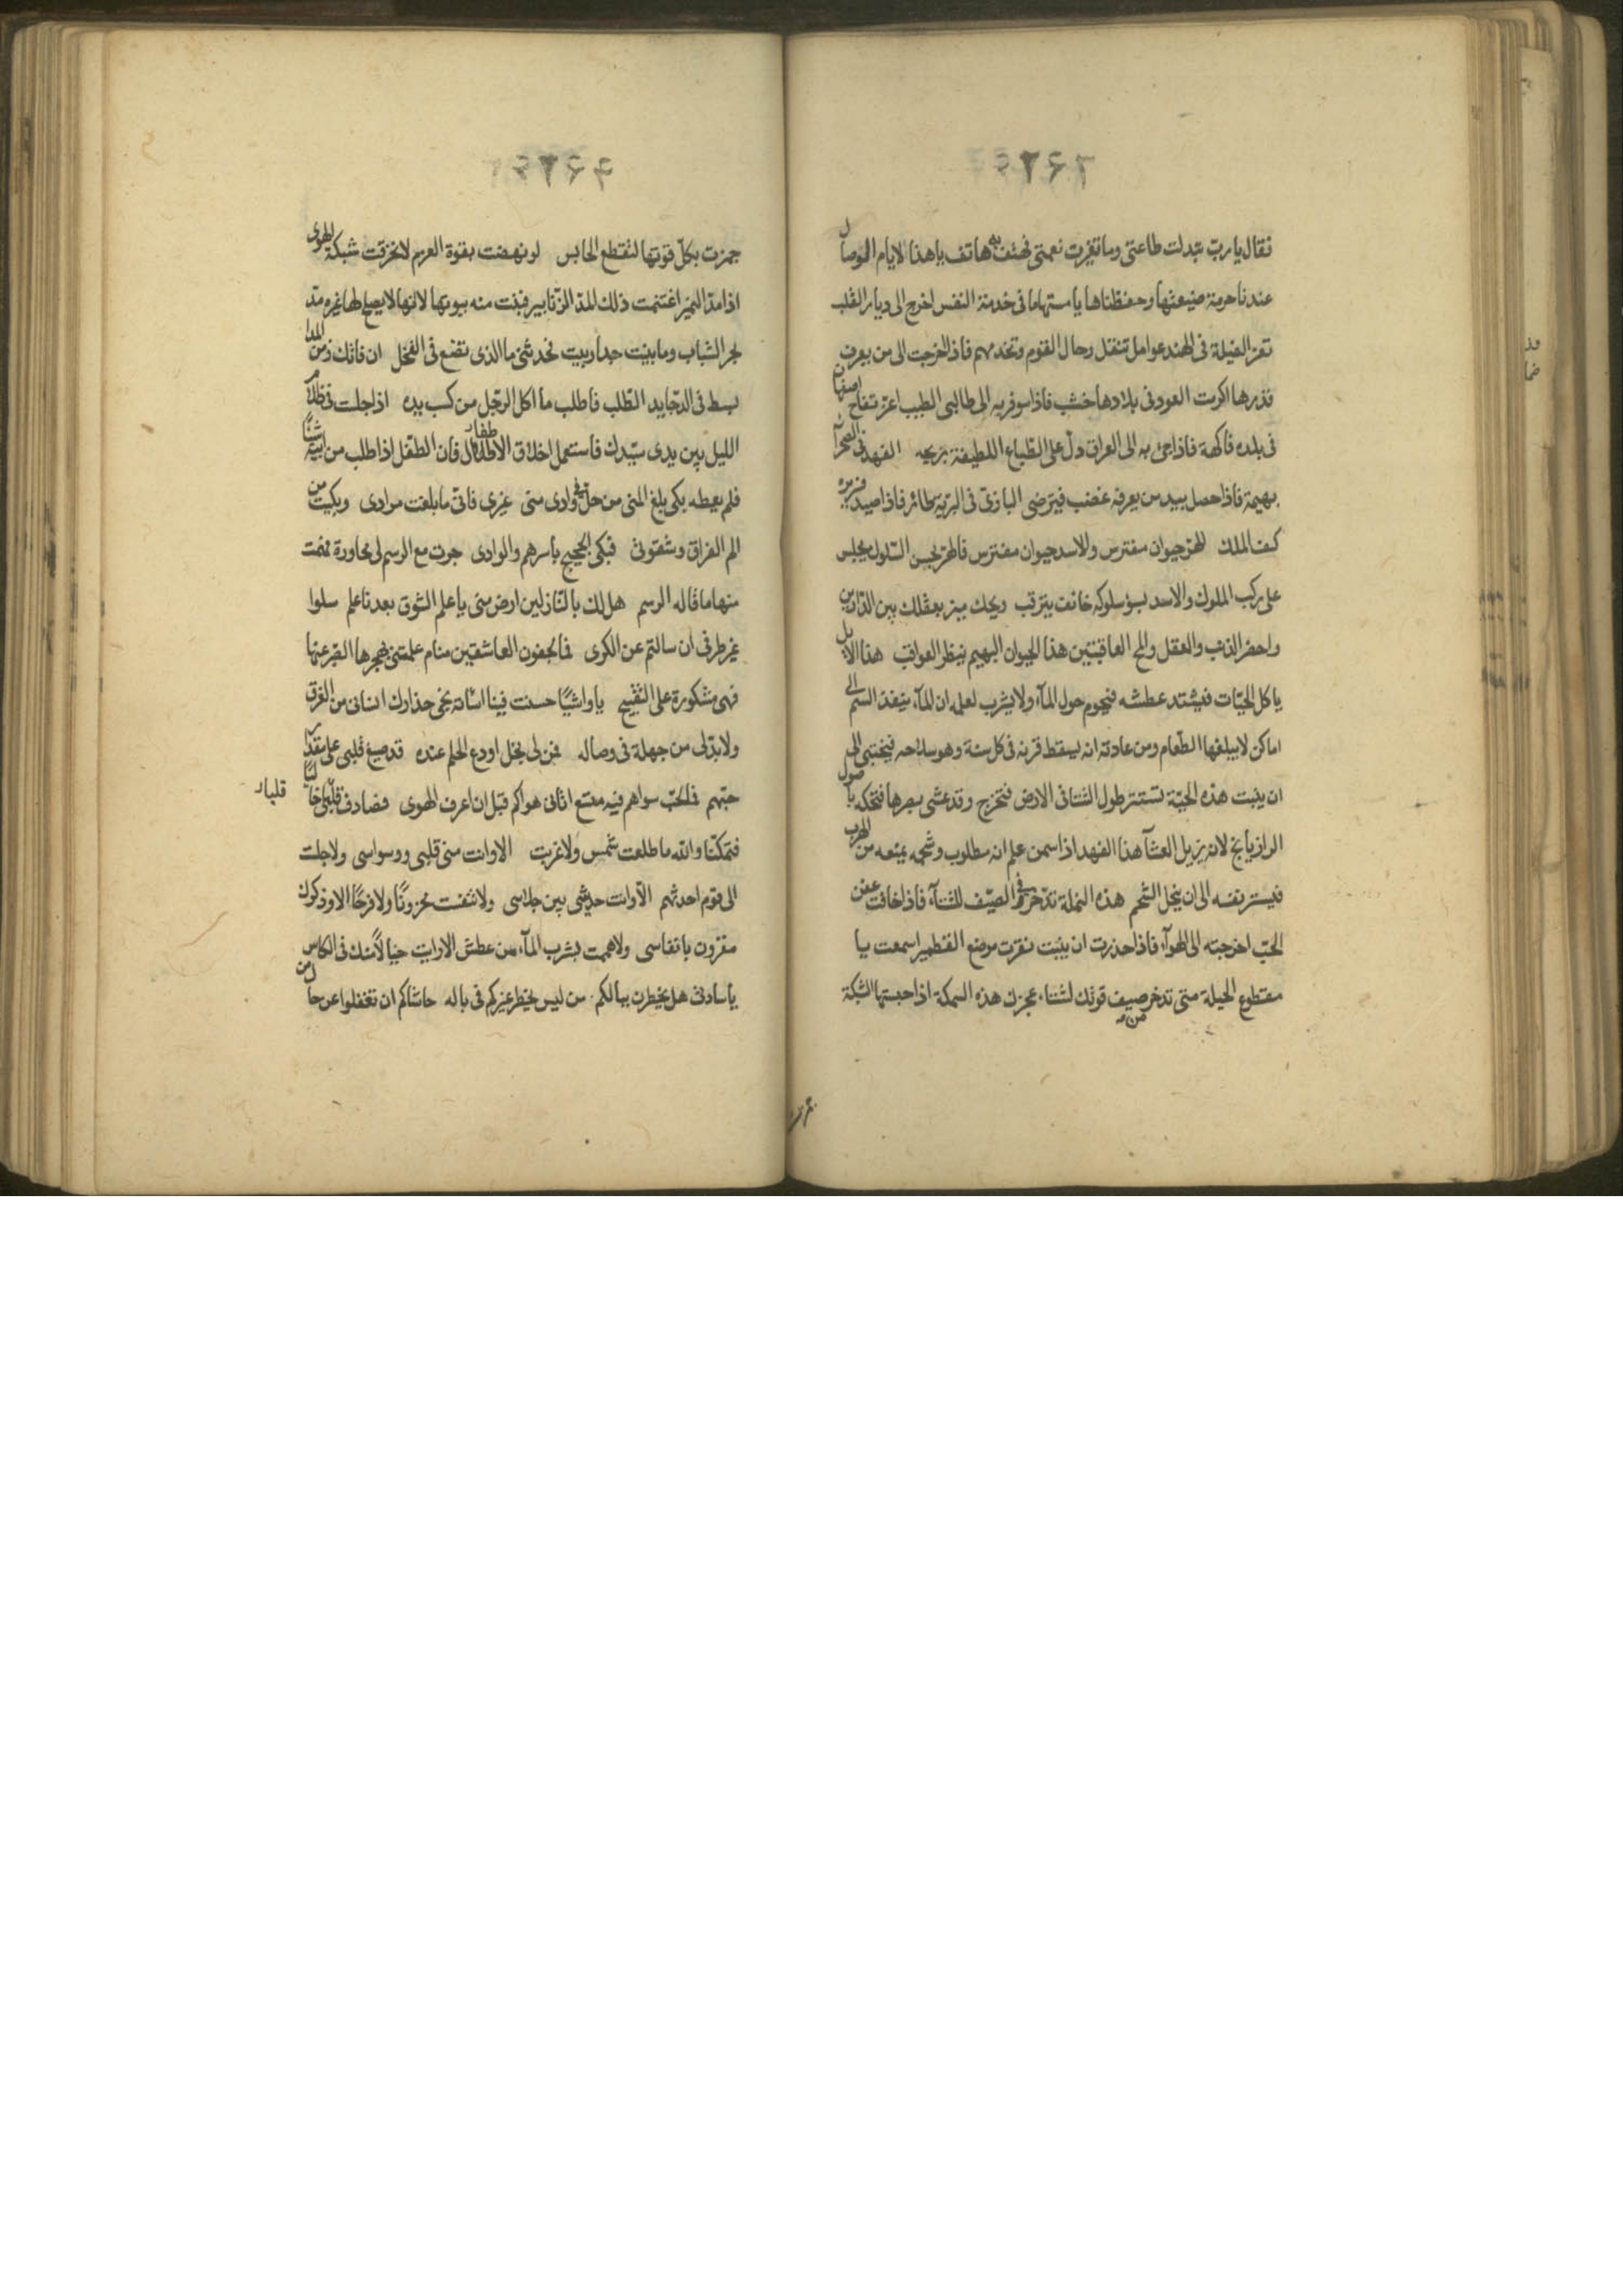 فقال يا رب تبدلت طاعتي وما تغيرت نعمتي فهتف به هاتف يا هذا لايام الوصال
عندنا حرمة ضيعتها وحفظناها يا مستهاما في خدمة النفس اخرج الى ديار القلب
الفيلة في الهند عوامل تنقل رحال القوم وتخدمهم فاذا اخرجت الى من يعرف
قدرها اكرمت العود في بلادها خشب فاذا سوفر به الى طالبي الطيب اعز تفاح اصفهان
في بلده فاكهة فاذا جئ به الى العراق دل على الطباع اللطيفة بريحه الفهد في الصحرآء
بهيمة فاذا حصل بيد من يعرفه غضب فيترضى البازي في البرية طائر فاذا صيد
كف الملك الهر حيوان مفترس والاسد حيوان مفترس فالهر بحسن السلوك يجلس
على ركب الملوك والاسد بسؤ سلوكه خائف يترقب ويحك ميز بعقلك بين الدارين
واحضر الذهب والعقل والمح العاقبتين هذا الحيوان البهيم ينظر العواقب هذا الايل
ياكل الحيات فيشتد عطشه فيحوم حول المآء ولا يشرب لعلمه ان المآء ينفذ السم الى
اماكن لا يبلغها الطعام ومن عادته انه يسقط قرنه في كل سنة وهو سلاحه فيختبى الى
ان ينبت هذه الحية تستتر طول الشتا في الارض فتخرج وقد عشى بصرها فتحكه باصول
الرازيانج لانه يزيل العشآ هذا الفهد اذا سمن علم انه مطلوب وشحمه يمنعه من الهرب
فيستر نفسه الى ان ينحل الشحم هذه النملة تدخر في الصيف للشتآء فاذا خافت عفن
الحب اخرجته الى الهوآء فاذا حذرت ان ينبت نقرت موضع القطمير اسمعت يا
مقطوع الحيلة متى تدخر من صيف قوتك لشتاء عجزك هذه السمكة اذا حبستها الشبكة
جمزت بكل قوتها لتقطع الحابس لو نهضت بقوة العزم لانخرقت شبكة الهوى
لجر الشباب وما بنيت جدار بيت فحدثني ما الذي تصنع في النخل ان فاتك زمن
بسط في الدجا يد الطلب فاطلب ما اكل الرجل من كسب يده اذا جلت في ظلام
الليل بين يدى سيدك فاستعمل اخلاق الاطفال فان الطفل اذا طلب من ابيه شيئا
فلم يعطه بكى بلغ المنى من حل في وادى منى غيرى فانى ما بلغت مرادى وبكيت من
الم الفراق وشقوتى فبكى الحجيج باسرهم والوادى جرت مع الرسم لى محاورة فهمت
منها ما قاله الرسم هل لك بالنازلين ارض منى يا علم الشوق بعدنا علم سلوا
غير طرفى ان سالتم عن الكرى فما لجفون العاشقين منام علمتنى بهجرها الصبر عنها
فهى مشكورة على التقبيح يا واشيا حسنت فينا اسائه نجى حذارك انسانى من الغرق
ولا بد لى من جهلة فى وصاله فمن لى بخل اودع الحلم عنده قد صيغ قلبى على مقدار
حبهم فما لحب سواهم فيه متسع اتانى هواكم قبل ان اعرف الهوى فصادف قلبا خاليا
قلبا
فتمكنا والله ما طلعت شمس ولا غربت الا وانت منى قلبى ووسواسى ولا جلست
الى قوم احدثهم الا وانت حديثى بين جلاسى ولا تنفست محزونا ولا فرحا الا وذكرك
مقرون بانفاسى ولا هممت بشرب المآء من عطش الا رايت خيالا منك فى الكاس
يا سادتى هل يخطرن ببالكم من ليس يخطر غيركم فى باله حاشاكم ان تغفلوا عن حال من